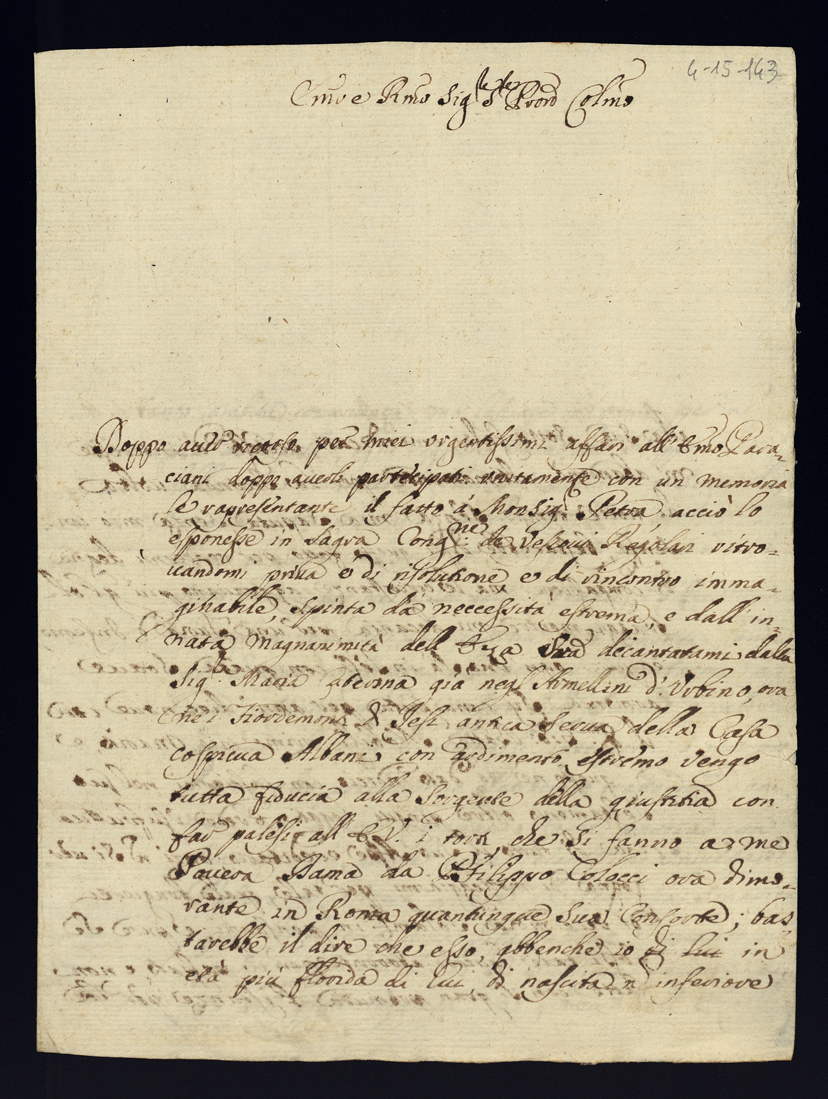 4-15-143
Emo e Rmo Sigre Sig Prond Colmo
Doppo auer per miei urgentissimi affari all'Emo Para-
ciani doppo auerli partecipati unitamente con un memoria
le rapresentante il fatto á Monsigr Petra acciò lo
esponesse in Sagra Congne de Vescoui Regolari ritro-
uandomi priua e di risolutione e di rincontro imma-
ginabile, spinta da neccessitá estrema, e dall'in-
nata magnanimitá dell'Eza Sua decantatami dalla
Sigra Maria già negl'Armellini d'Urbino, ora
ne i Fiordemonti di Iesi antica serua della Casa
cospicua Albani con ardimento estremo vengo
tutta fiducia alla sorgente della giustitia con
far palesi all'E.V. i torti, che si fanno a me
Pouera Dama da Filippo Colocci ora dimo-
rante in Roma quantunque suo Consorte; bas
tarebbe il dire che esso, abbenche io di lui in
età piú florida di lui, di nascita n inferiore